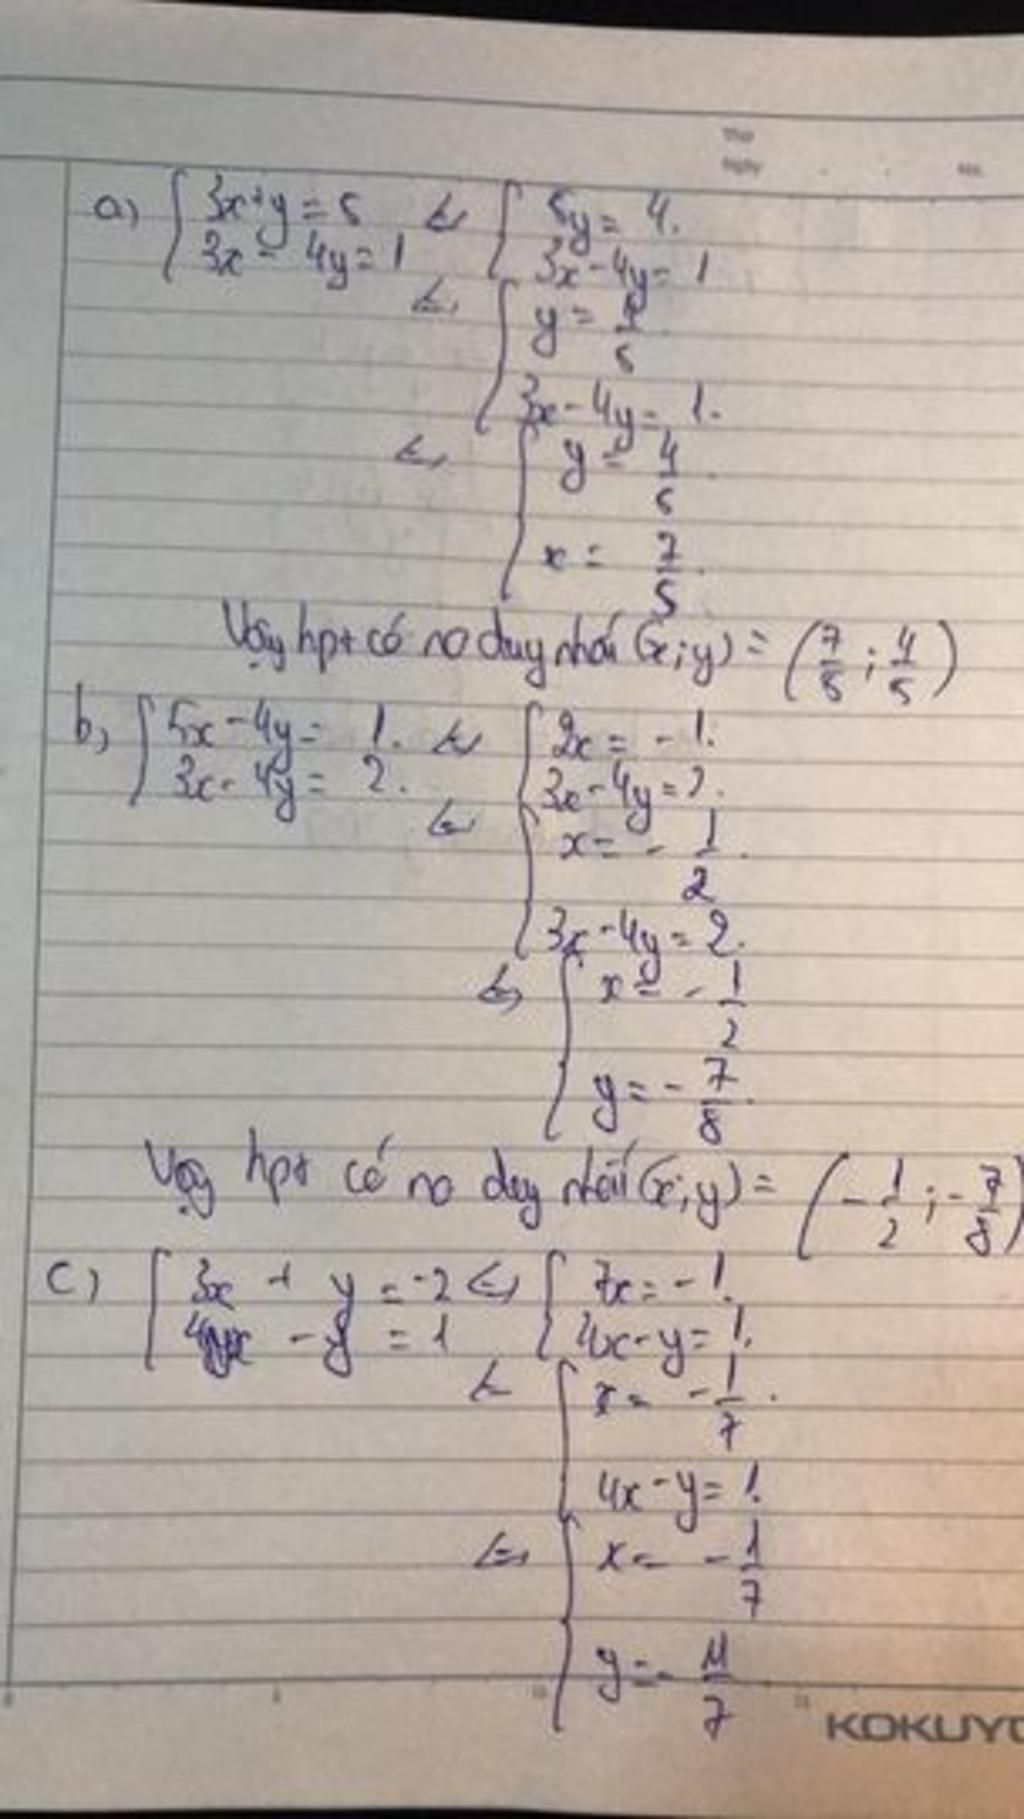 Thứ
Ngày . . No.
a) { 3x+y=5 ⇔ { 5y = 4.
3x - 4y=1 3x-4y= 1
⇔ { y = 4/5
3x-4y= 1.
⇔ { y = 4/5.
x = 7/5.
Vậy hpt có no duy nhất (x;y) = (7/5 ; 4/5)
b) { 5x-4y= 1. ⇔ { 2x = -1.
3x-4y= 2. 3x-4y=2.
⇔ { x= -1/2.
3x-4y=2.
⇔ { x = -1/2
y= -7/8.
Vậy hpt có no duy nhất (x;y) = (-1/2 ; -7/8)
c) { 3x + y = -2 ⇔ { 7x= -1.
4x - y = 1 4x-y= 1.
⇔ { x= -1/7.
4x-y= 1.
⇔ { x= -1/7
y= -11/7
KOKUYO